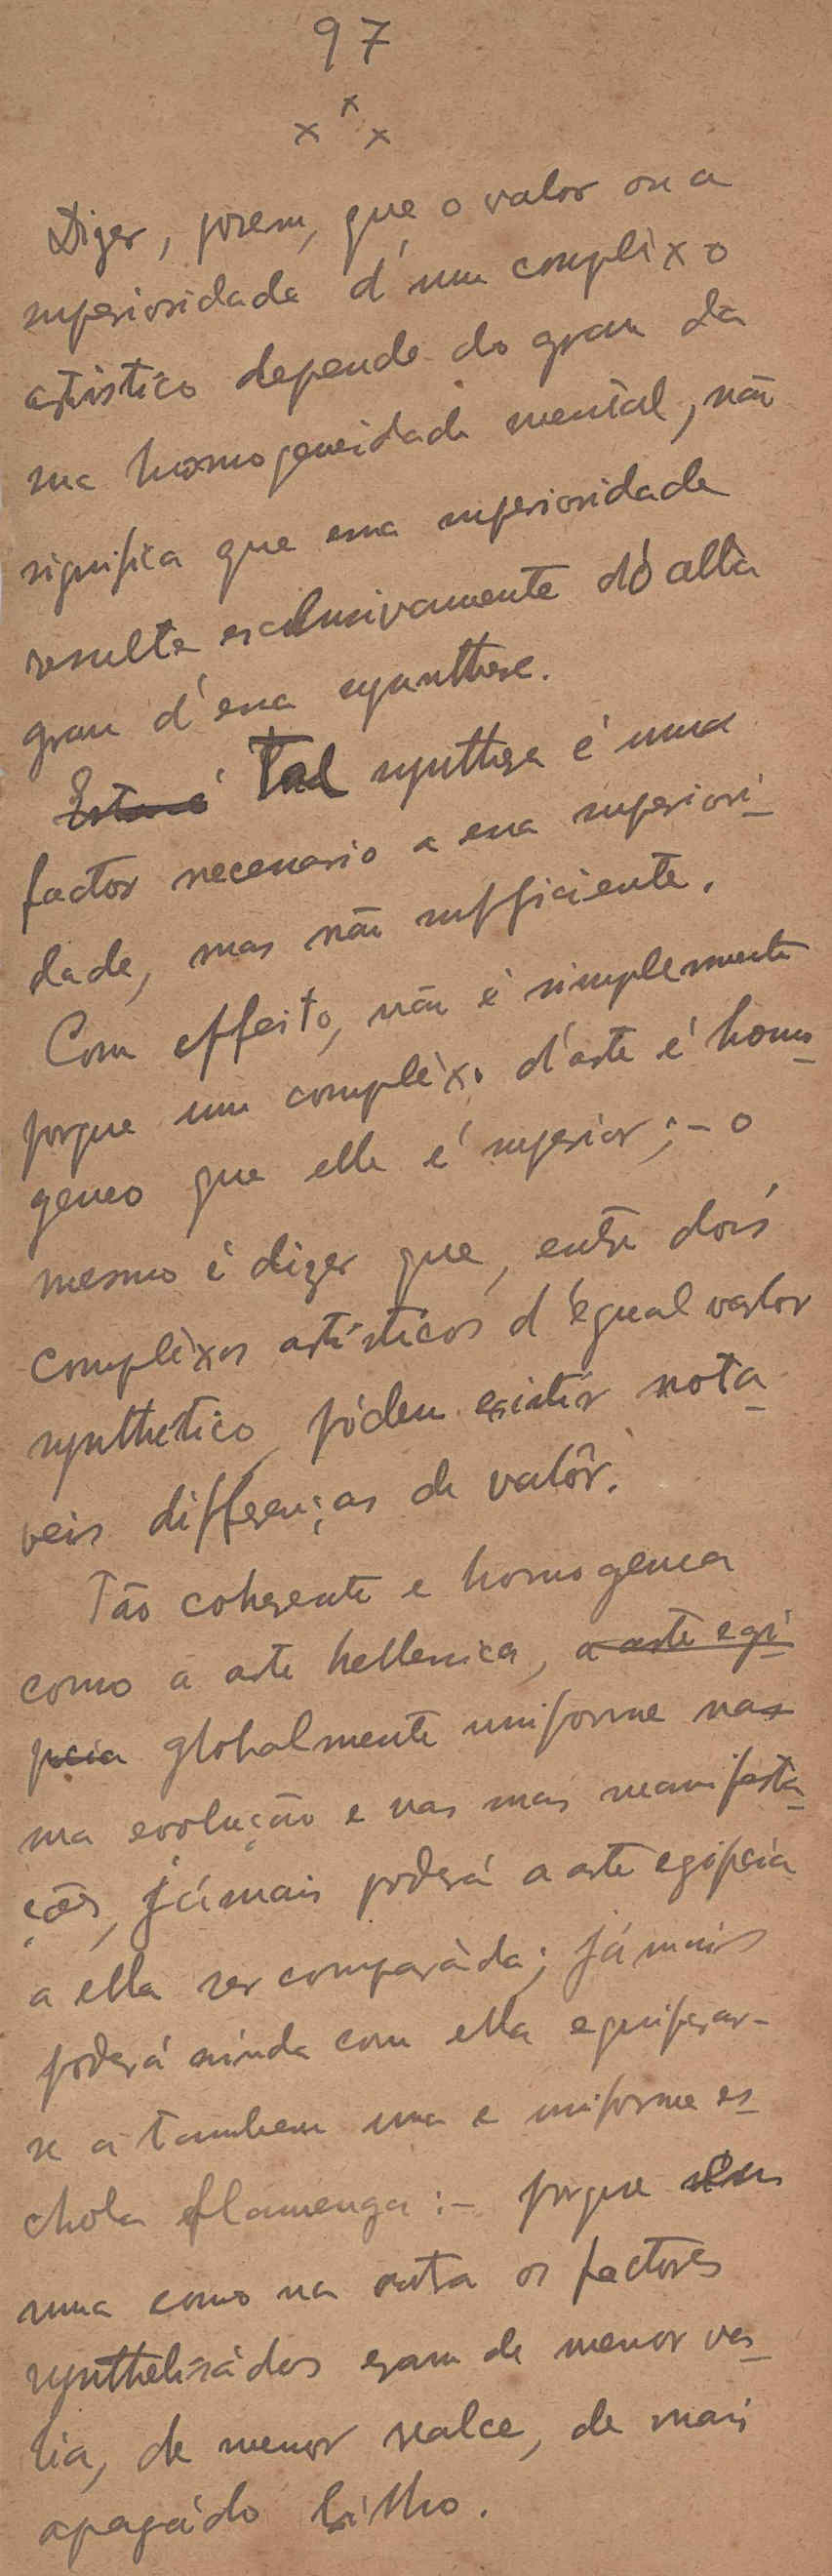 97
x x x
Dizer, porem, que o valor ou a
superiosidade d'um complèxo
artistico depende do grau da
sua homogeneidade mental, não
significa que essa superiosidade
resulte exclusivamente dó alto
grau d'essa synthese.
Esta é Tal synthese é uma
factor necessario a essa superiori-
dade, mas não sufficiente.
Com effeito, não é simplesmente
porque um complèxo d'arte é homo-
geneo que elle é superior; – o
mesmo é dizer que, entre dois
complèxos artisticos d'egual valor
synthetico, pódem existir nota-
veis differenças de valôr.
Tão coherente e homogenea
como a arte hellenica, a arte egi-
pcia globalmente uniforme na
sua evolução e nas suas manifesta-
ções, jámais poderá a arte egipcia
a ella ser comparàda; jámais
poderá ainda com ella equiparar-
se a tambem una e uniforme es-
chola flamenga: – porque
uma como na outra os factores
synthetisádos eram de menor va-
lia, de menor realce, de mais
apagádo brilho.